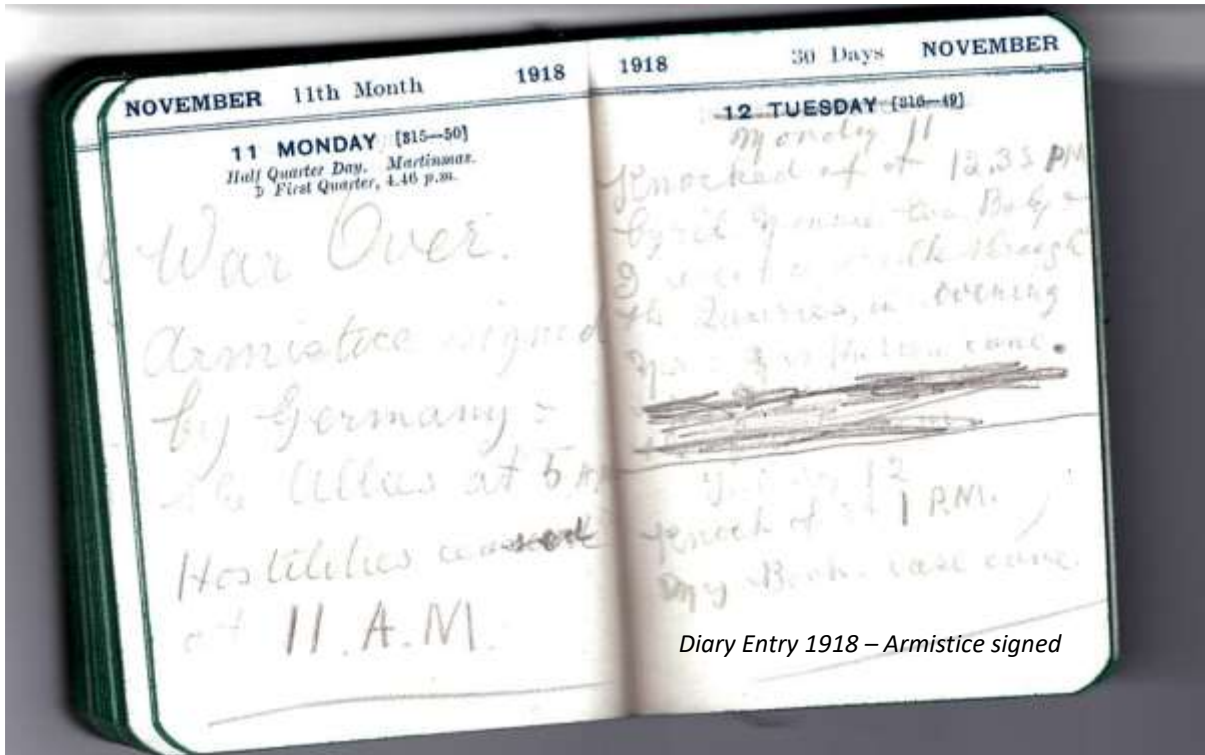 NOVEMBER 11th Month 1918
11 MONDAY [315—50]
Half Quarter Day. Martinmas.
☽ First Quarter, 4.46 p.m.
War Over.
Armistice signed
by Germany &
the Allies at 5 AM
Hostilities
at 11. A.M.
1918 30 Days NOVEMBER
12 TUESDAY [316—49]
Monday 11
Knocked of at 12.35 PM
Cyril two Baby &
I went a walk through
the Quarries, in evening
came.
12
Knock of 1 P.M.
My Book case came.
Diary Entry 1918 – Armistice signed